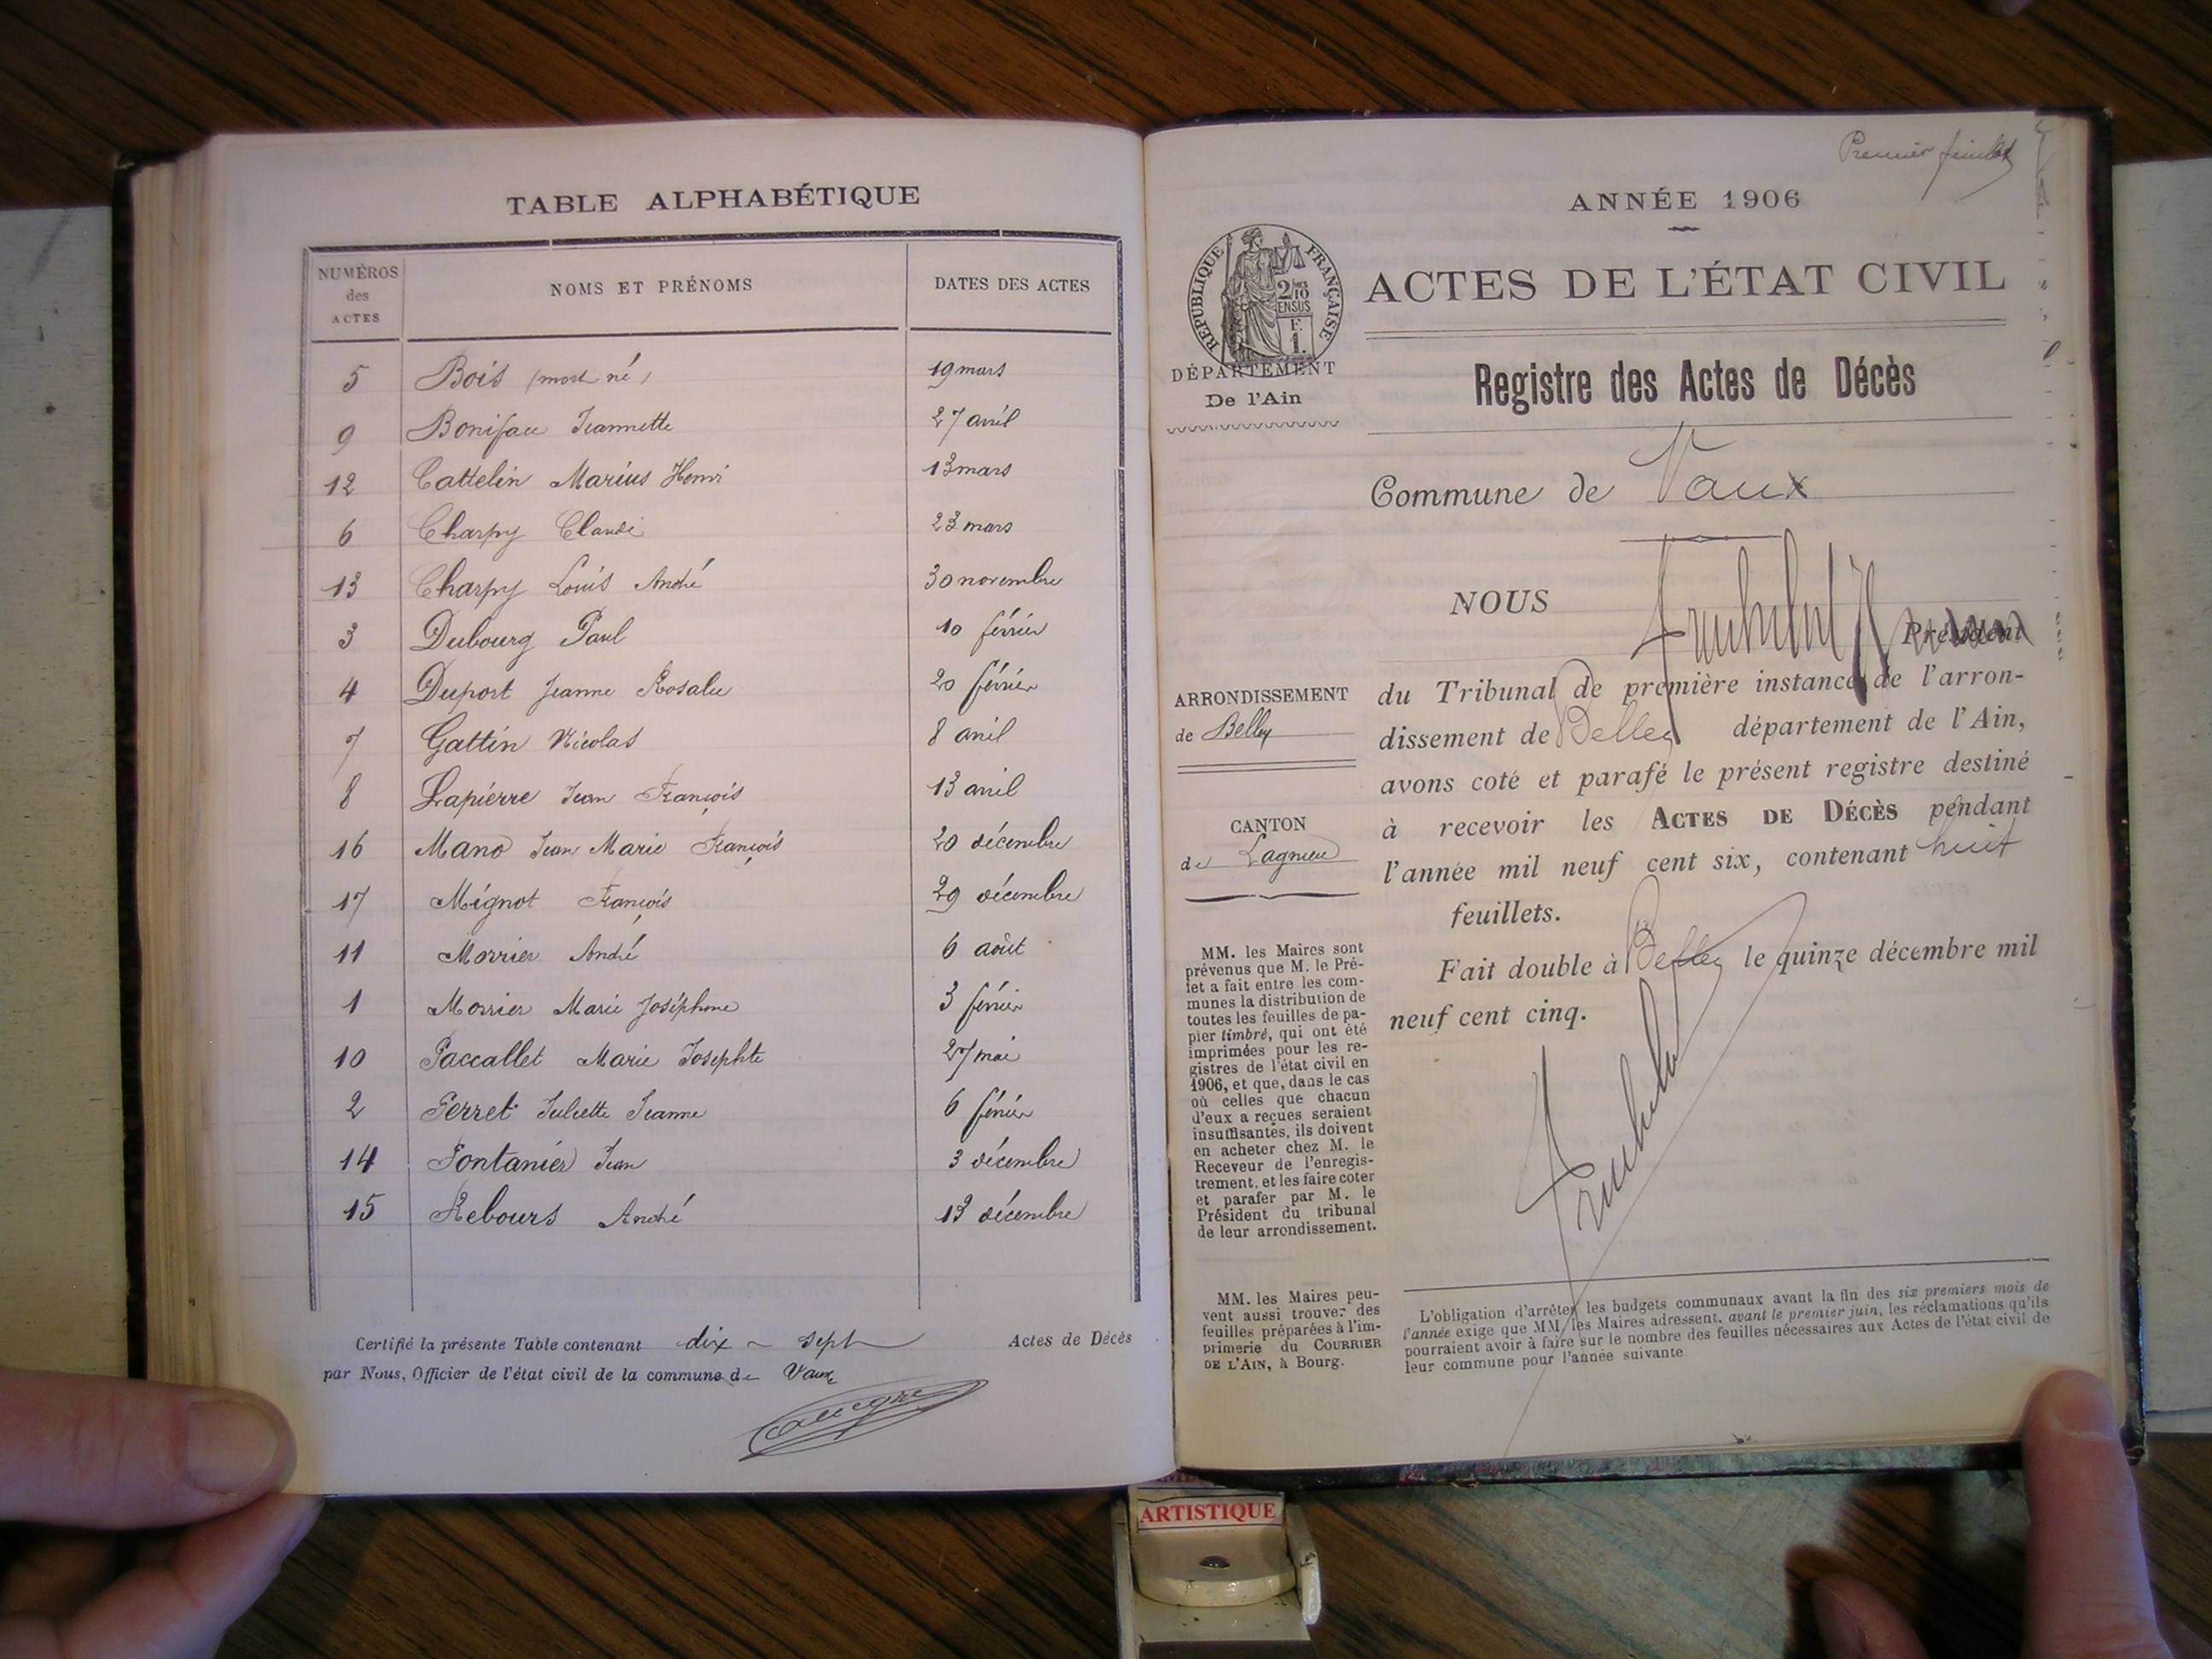 TABLE ALPHABÉTIQUE
NUMÉROS des ACTES NOMS ET PRÉNOMS DATES DES ACTES
5 Bois (mort né) 19 mars
9 Boniface Jeannette 27 avril
12 Cattelin Marius Henri 13 mars
6 Charpy Claude 23 mars
13 Charpy Louis André 30 novembre
3 Dubourg Paul 10 février
4 Duport Jeanne Rosalie 20 février
7 Gattin Nicolas 8 avril
8 Lapierre Jean François 13 avril
16 Mano Jean Marie François 20 décembre
17 Mignot François 29 décembre
11 Morrier André 6 août
1 Morrier Marie Joséphine 3 février
10 Paccallet Marie Josephte 27 mai
2 Perret Juliette Jeanne 6 février
14 Pontanier Jean 3 décembre
15 Rebours André 13 décembre
Certifié la présente Table contenant dix-sept Actes de Décès
par Nous, Officier de l'état civil de la commune de Vaux
Premier feuillet
ANNÉE 1906
RÉPUBLIQUE FRANÇAISE
2/10 EN SUS
F. 1.
ACTES DE L'ÉTAT CIVIL
DÉPARTEMENT
De l'Ain
Registre des Actes de Décès
Commune de Vaux
NOUS Président
ARRONDISSEMENT
de Belley
CANTON
de Lagnieu
du Tribunal de première instance de l'arron-
dissement de Belley département de l'Ain,
avons coté et parafé le présent registre destiné
à recevoir les ACTES DE DÉCÈS pendant
l'année mil neuf cent six, contenant huit
feuillets.
Fait double à Belley le quinze décembre mil
neuf cent cinq.
MM. les Maires sont
prévenus que M. le Pré-
fet a fait entre les com-
munes la distribution de
toutes les feuilles de pa-
pier timbré, qui ont été
imprimées pour les re-
gistres de l'état civil en
1906, et que, dans le cas
où celles que chacun
d'eux a reçues seraient
insuffisantes, ils doivent
en acheter chez M. le
Receveur de l'enregis-
trement, et les faire coter
et parafer par M. le
Président du tribunal
de leur arrondissement.
MM. les Maires peu-
vent aussi trouver des
feuilles préparées à l'im-
primerie du COURRIER
DE L'AIN, à Bourg.
L'obligation d'arrêter les budgets communaux avant la fin des six premiers mois de
l'année exige que MM. les Maires adressent, avant le premier juin, les réclamations qu'ils
pourraient avoir à faire sur le nombre des feuilles nécessaires aux Actes de l'état civil de
leur commune pour l'année suivante
ARTISTIQUE